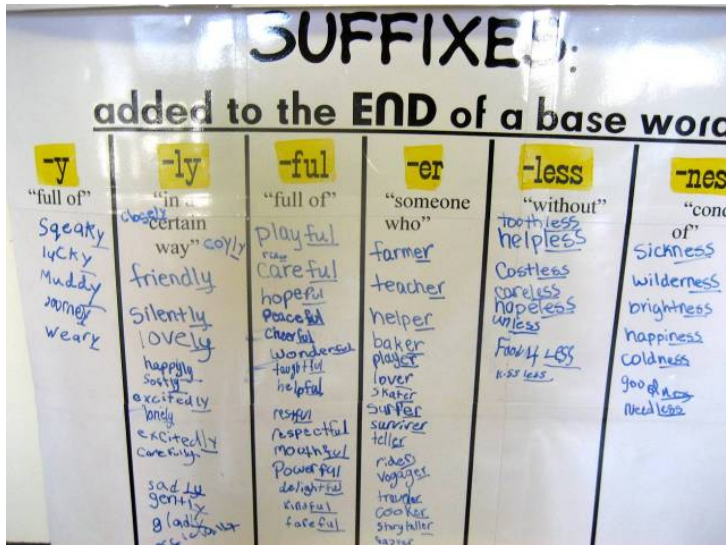 SUFFIXES:
added to the END of a base word
-y
"full of"
Sqeaky
lyCky
Muddy
Journey
weary
-ly
"in a
closely
certain
way"
coyly
friendly
silently
lovely
happyly
softly
excitedly
lonely
excitedly
Carefully
sadly
gently
gladly
-ful
"full of"
playful
careful
hopeful
Peaceful
cheerful
wonderful
helpful
restful
respectful
mouthful
Powerful
delightful
kindful
fateful
-er
"someone
who"
farmer
teacher
helper
baker
player
lover
skater
surfer
surviver
teller
rides
Voyager
cooker
storyteller
-less
"without"
toothless
helpless
Costless
careless
hopeless
unless
kissless
-nes
"conc
of"
sickness
wilderness
brightness
happiness
coldness
goodness
needless